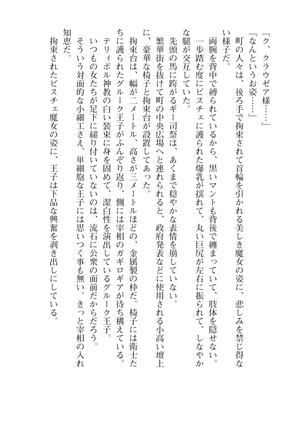 「く、クラウゼア様……」
「なんというお姿……」
　町の人々は、後ろ手で拘束されて首輪を引かれる美しき魔女の姿に、悲しみを禁じ得な
い様子だ。
　両腕を背中で縛られているから、黒いマントも背後で纏まっていて、肢体を隠せない。
　一歩踏む度にビスチェに護られた爆乳が揺れて、丸い巨尻が左右に振られて、しなやか
な腿が交互していた。
　先頭の馬に跨がるギー司祭は、あくまで穏やかな表情を崩していない。
　繁華街を抜けて町の中央広場へと連れられると、政府発表などに使用される小高い壇上
に、豪華な椅子と拘束台が設置してあった。
　拘束台は、幅が二メートル、高さが三メートルほどの、金属製の枠だ。椅子には衛士た
ちに護られたグルーク王子がふんぞり返り、側には宰相のガギロギアが待ち構えている。
　テリィボル神教の白い装束に身を固めて、潔白性を演出しているグルーク王子。
　いつもの女たちが足下に縋り付いていないのは、流石に公衆の面前だからだろう。
　そういう対面的な小細工さえ、単細胞な王子には思いつく事も無い。きっと宰相の入れ
知恵だ。
　拘束されたビスチェ魔女の姿に、王子は下品な興奮を剥き出しにしている。